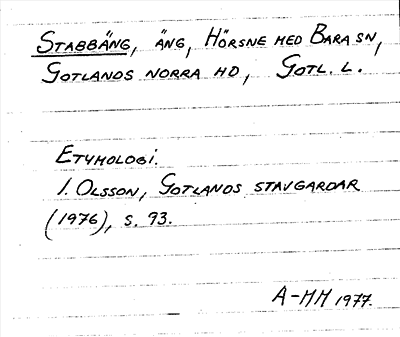 STABBÄNG, ÄNG, HÖRSNE MED BARA SN,
GOTLANDS NORRA HD, GOTL. L.
ETYMOLOGI.
I. OLSSON, GOTLANDS STAVGARDAR
(1976), S. 93.
A-MH 1977.